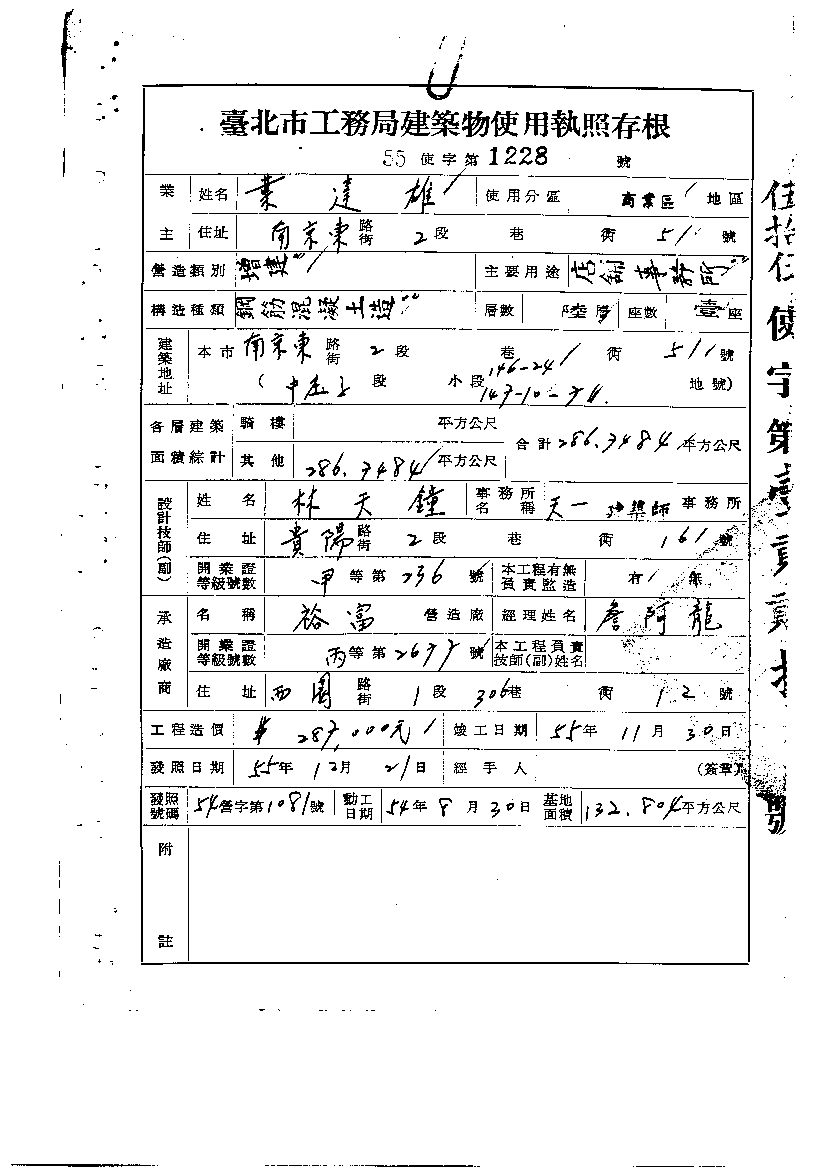 臺北市工務局建築物使用執照存根
55 使字第 1228 號
業主 姓名 業達雄 使用分區 商業區 地區
住址 南京東 路街 2 段 巷 衖 51 號
營造類別 增建 主要用途 店鋪事務所
構造種類 鋼筋混凝土造 層數 陸層 座數 壹座
建築地址 本市 南京東 路街 2 段 巷 衖 511 號
( 段 小段 146-24 地號)
各層建築面積綜計 騎樓 平方公尺 合計 286.3484 平方公尺
其他 286.3484 平方公尺
設計技師(副) 姓名 林天鐘 事務所名稱 天一建築師 事務所
住址 貴陽 路街 2 段 巷 衖 161 號
開業證等級號數 甲等第 236 號 本工程有無負責監造 有 無
承造廠商 名稱 裕富 營造廠 經理姓名 詹阿龍
開業證等級號數 丙等第 號 本工程負責技師(副)姓名
住址 西園 路街 1 段 306 巷 衖 12 號
工程造價 $ 287,000元 竣工日期 55年 11月 30日
發照日期 55年 12月 21日 經手人 (簽章)
發照號碼 54營字第1081號 動工日期 54年 8月 30日 基地面積 132.804平方公尺
附註
伍拾伍使字第壹貳貳捌號